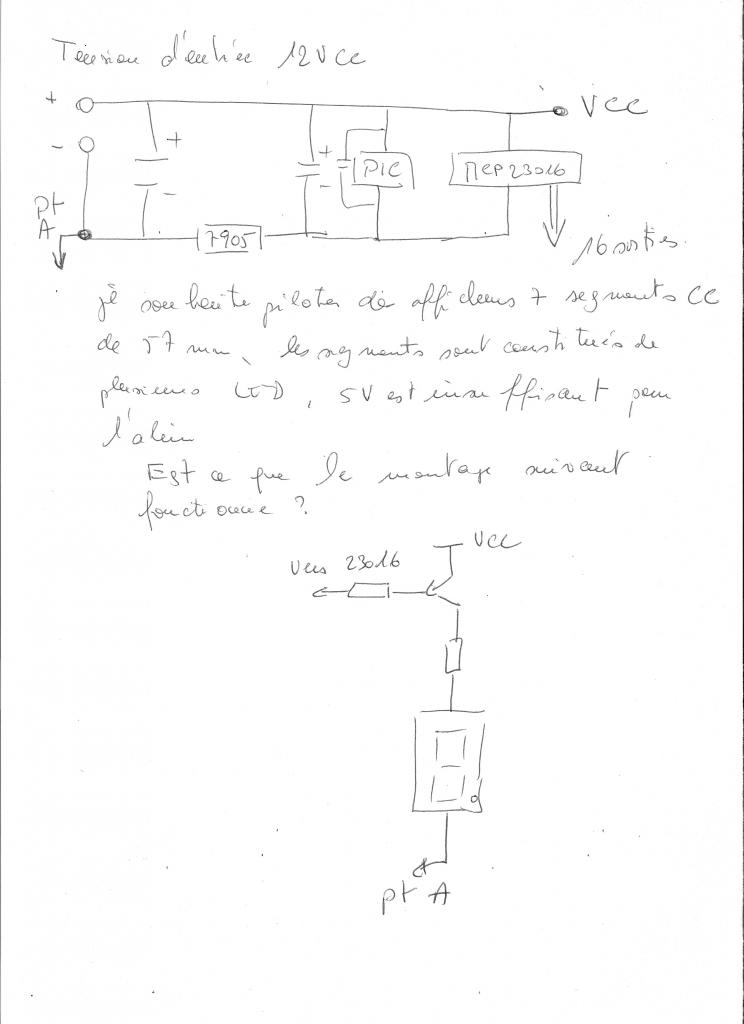 Tension d'entrée 12VCC
+
VCC
-
+
+
-
-
PIC
MCP23016
pt
A
7905
16 sorties
je souhaite piloter des afficheurs 7 segments CC
de 57 mm, les segments sont constitués de
plusieurs LED, 5V est insuffisant pour
l'alim
Est ce que le montage suivant
fonctionne ?
VCC
Vers 23016
pt A